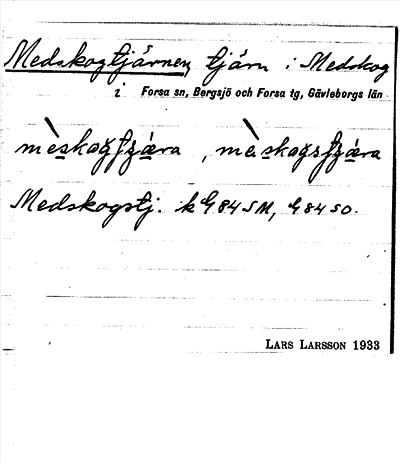 Medskogtjärnen, tjärn i Medskog
i Forsa sn, Bergsjö och Forsa tg, Gävleborgs län
mèskogʃʒæra, mèskogsʃʒæra
Medskogstj. k G 84 SM, G 84 SO.
LARS LARSSON 1933